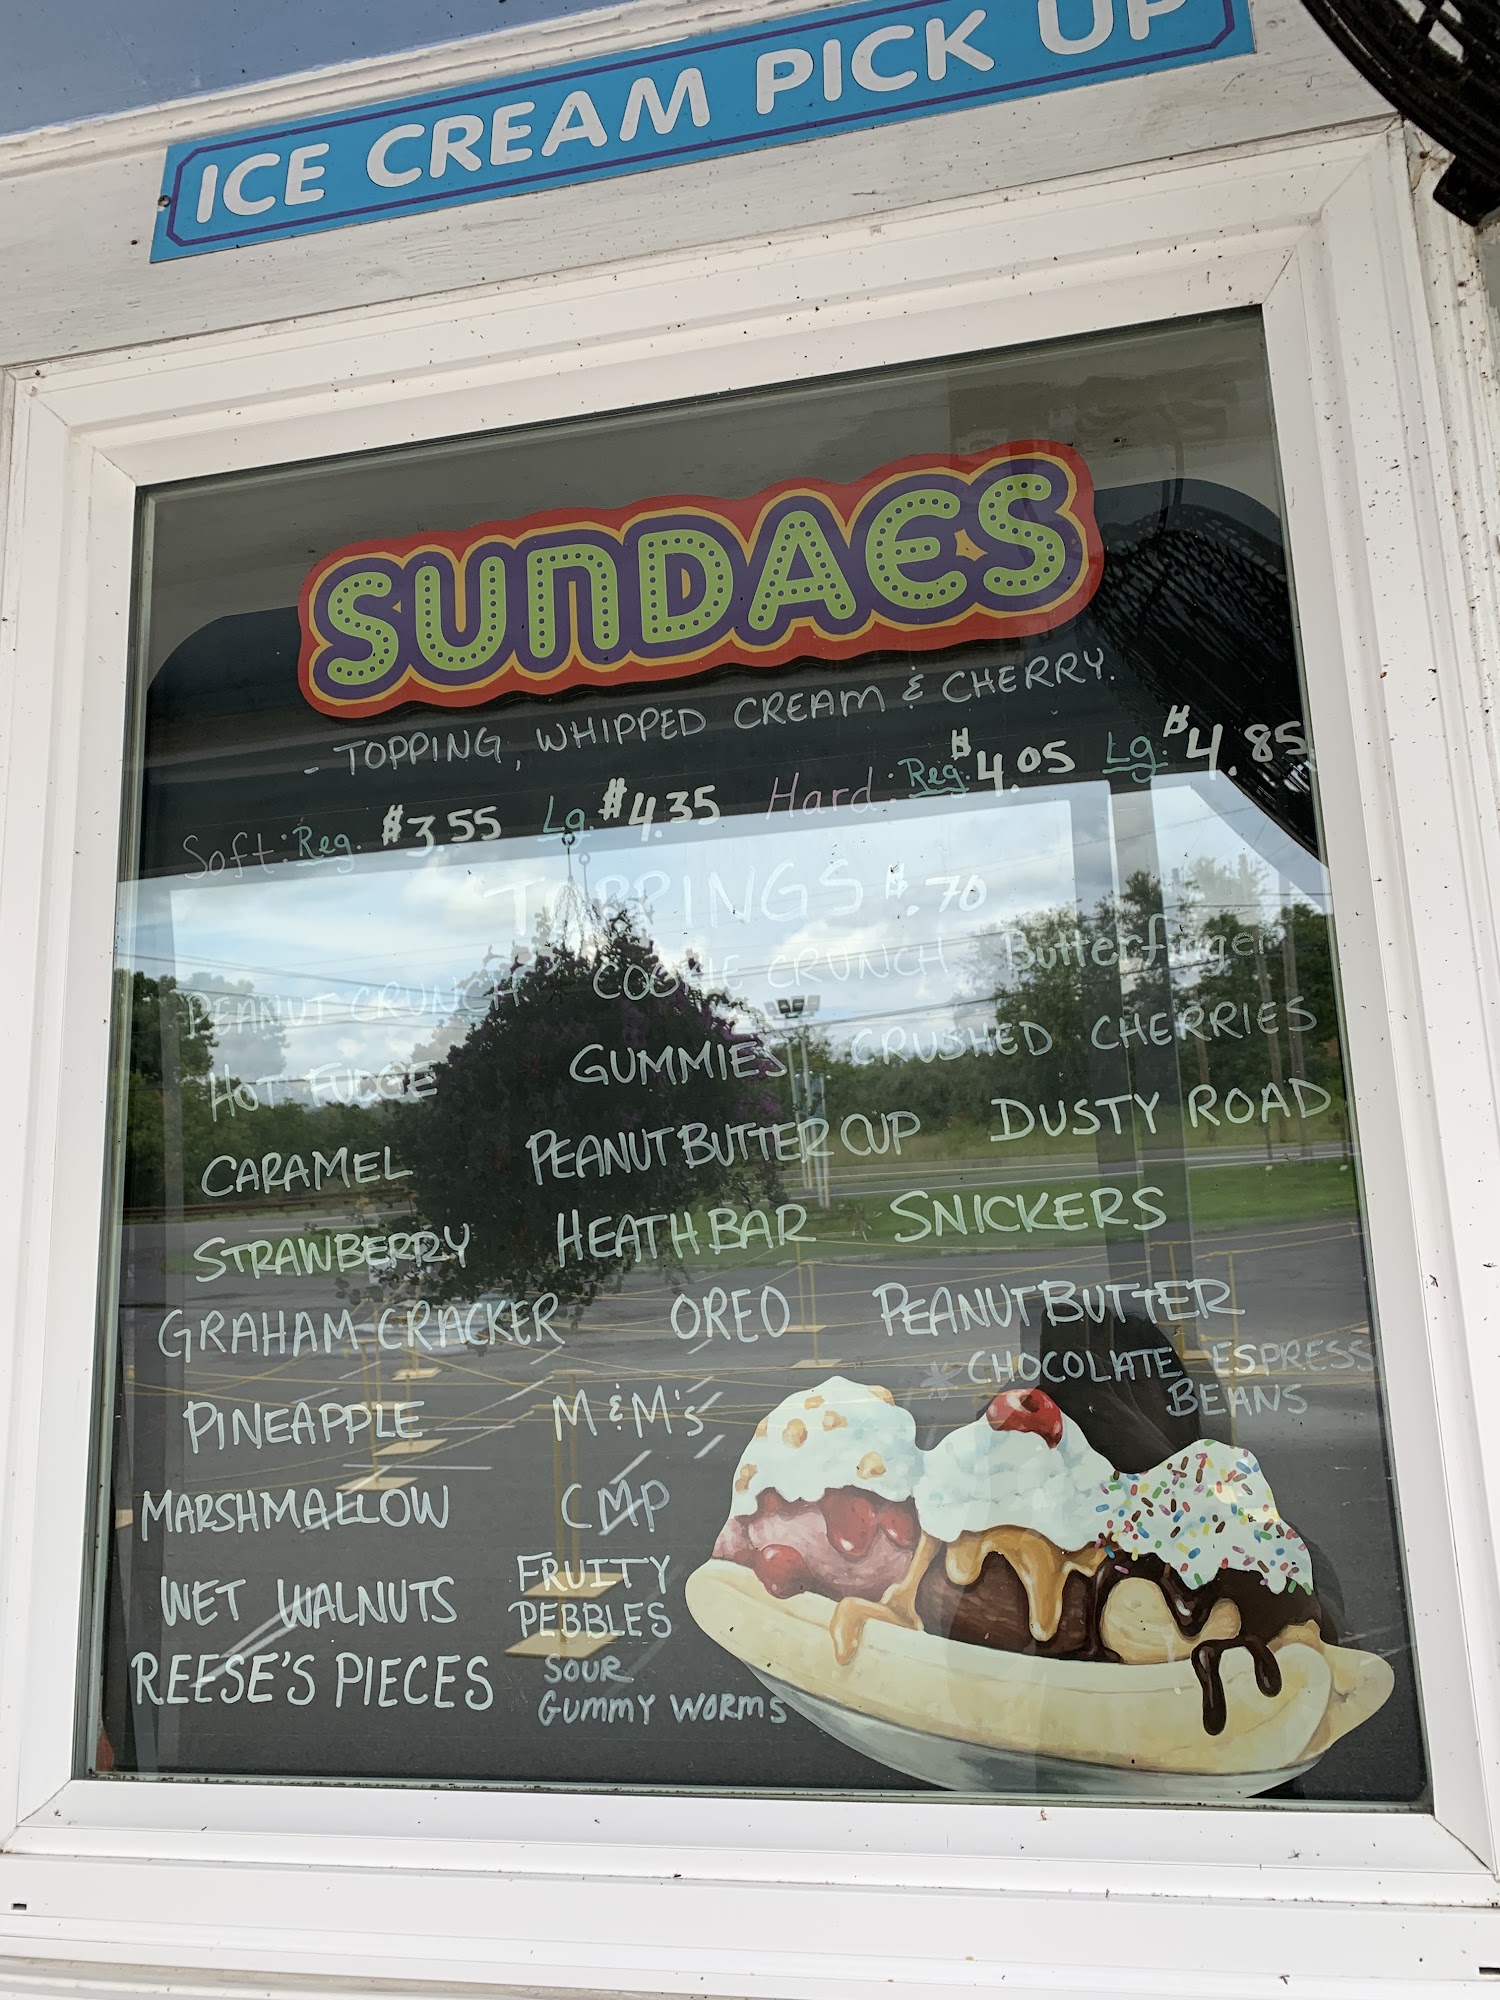 ICE CREAM PICK UP
SUNDAES
- TOPPING, WHIPPED CREAM & CHERRY.
Soft: Reg. $3.55 Lg. $4.35 Hard: Reg. $4.05 Lg. $4.85
TOPPINGS $.70
PEANUT CRUNCH COOKIE CRUNCH Butterfinger
HOT FUDGE GUMMIES CRUSHED CHERRIES
CARAMEL PEANUT BUTTER CUP DUSTY ROAD
STRAWBERRY HEATH BAR SNICKERS
GRAHAM CRACKER OREO PEANUT BUTTER
PINEAPPLE M&M's * CHOCOLATE ESPRESS
BEANS
MARSHMALLOW CMP
WET WALNUTS FRUITY
PEBBLES
REESE'S PIECES SOUR
GUMMY WORMS